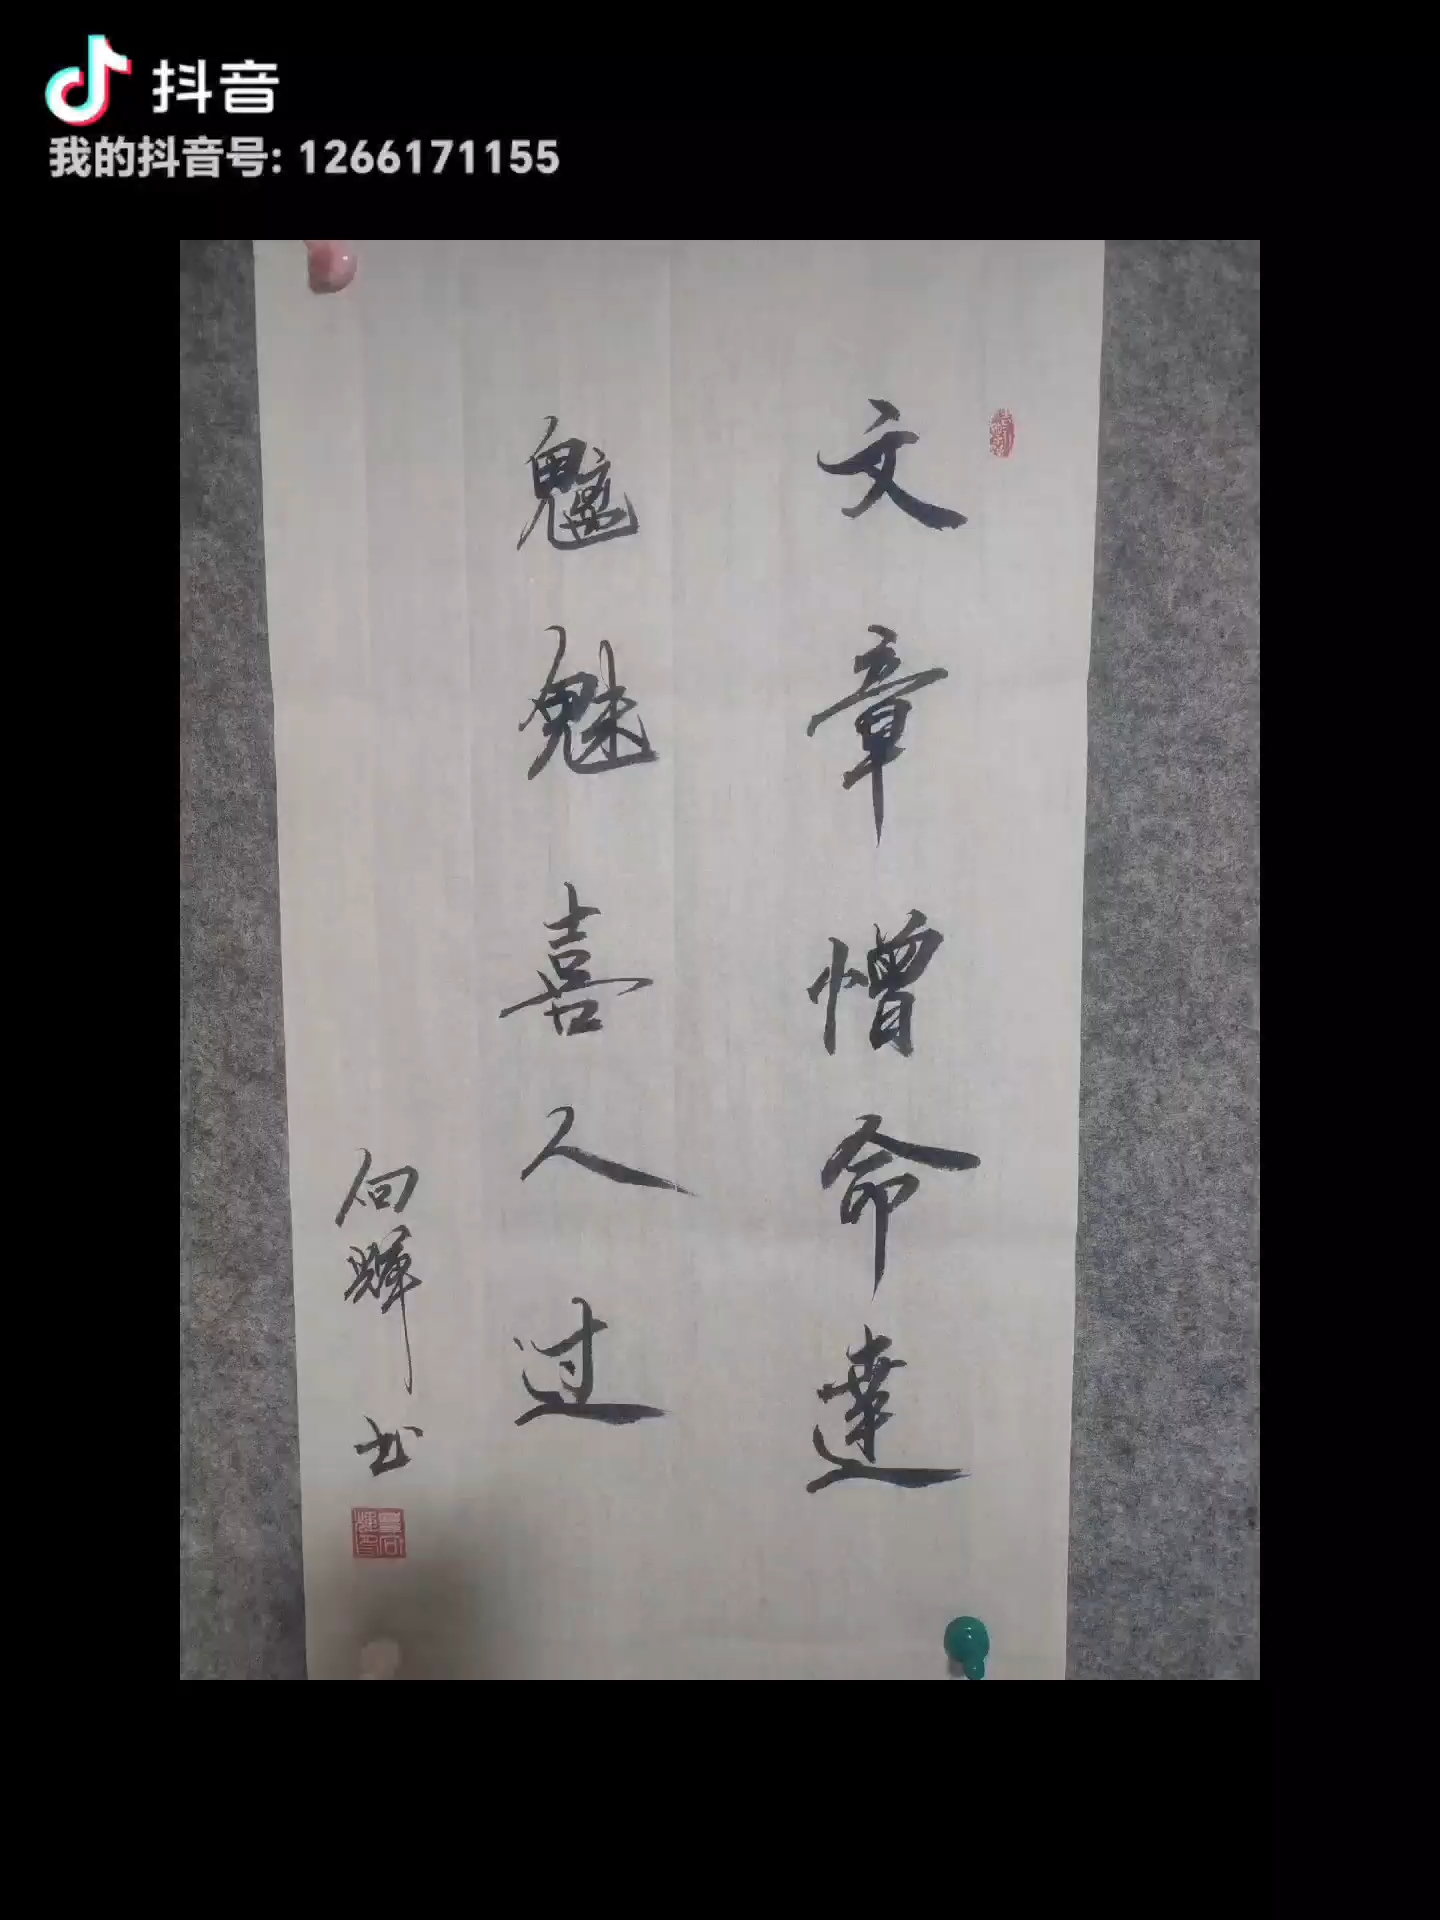 抖音
我的抖音号: 1266171155
文章憎命達
魑魅喜人过
向輝书